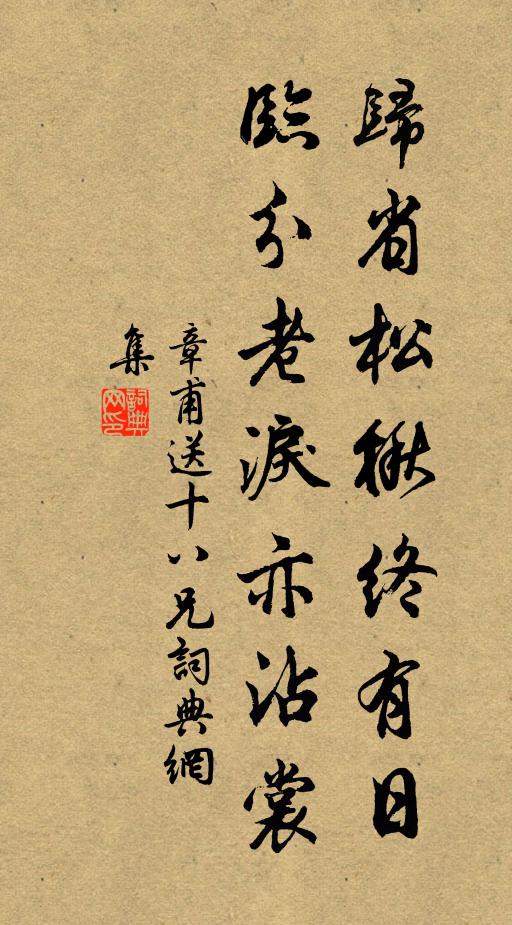 歸省松楸終有日
臨分老淚亦沾裳
章甫送十八兄詞典網
集
詞典
网印